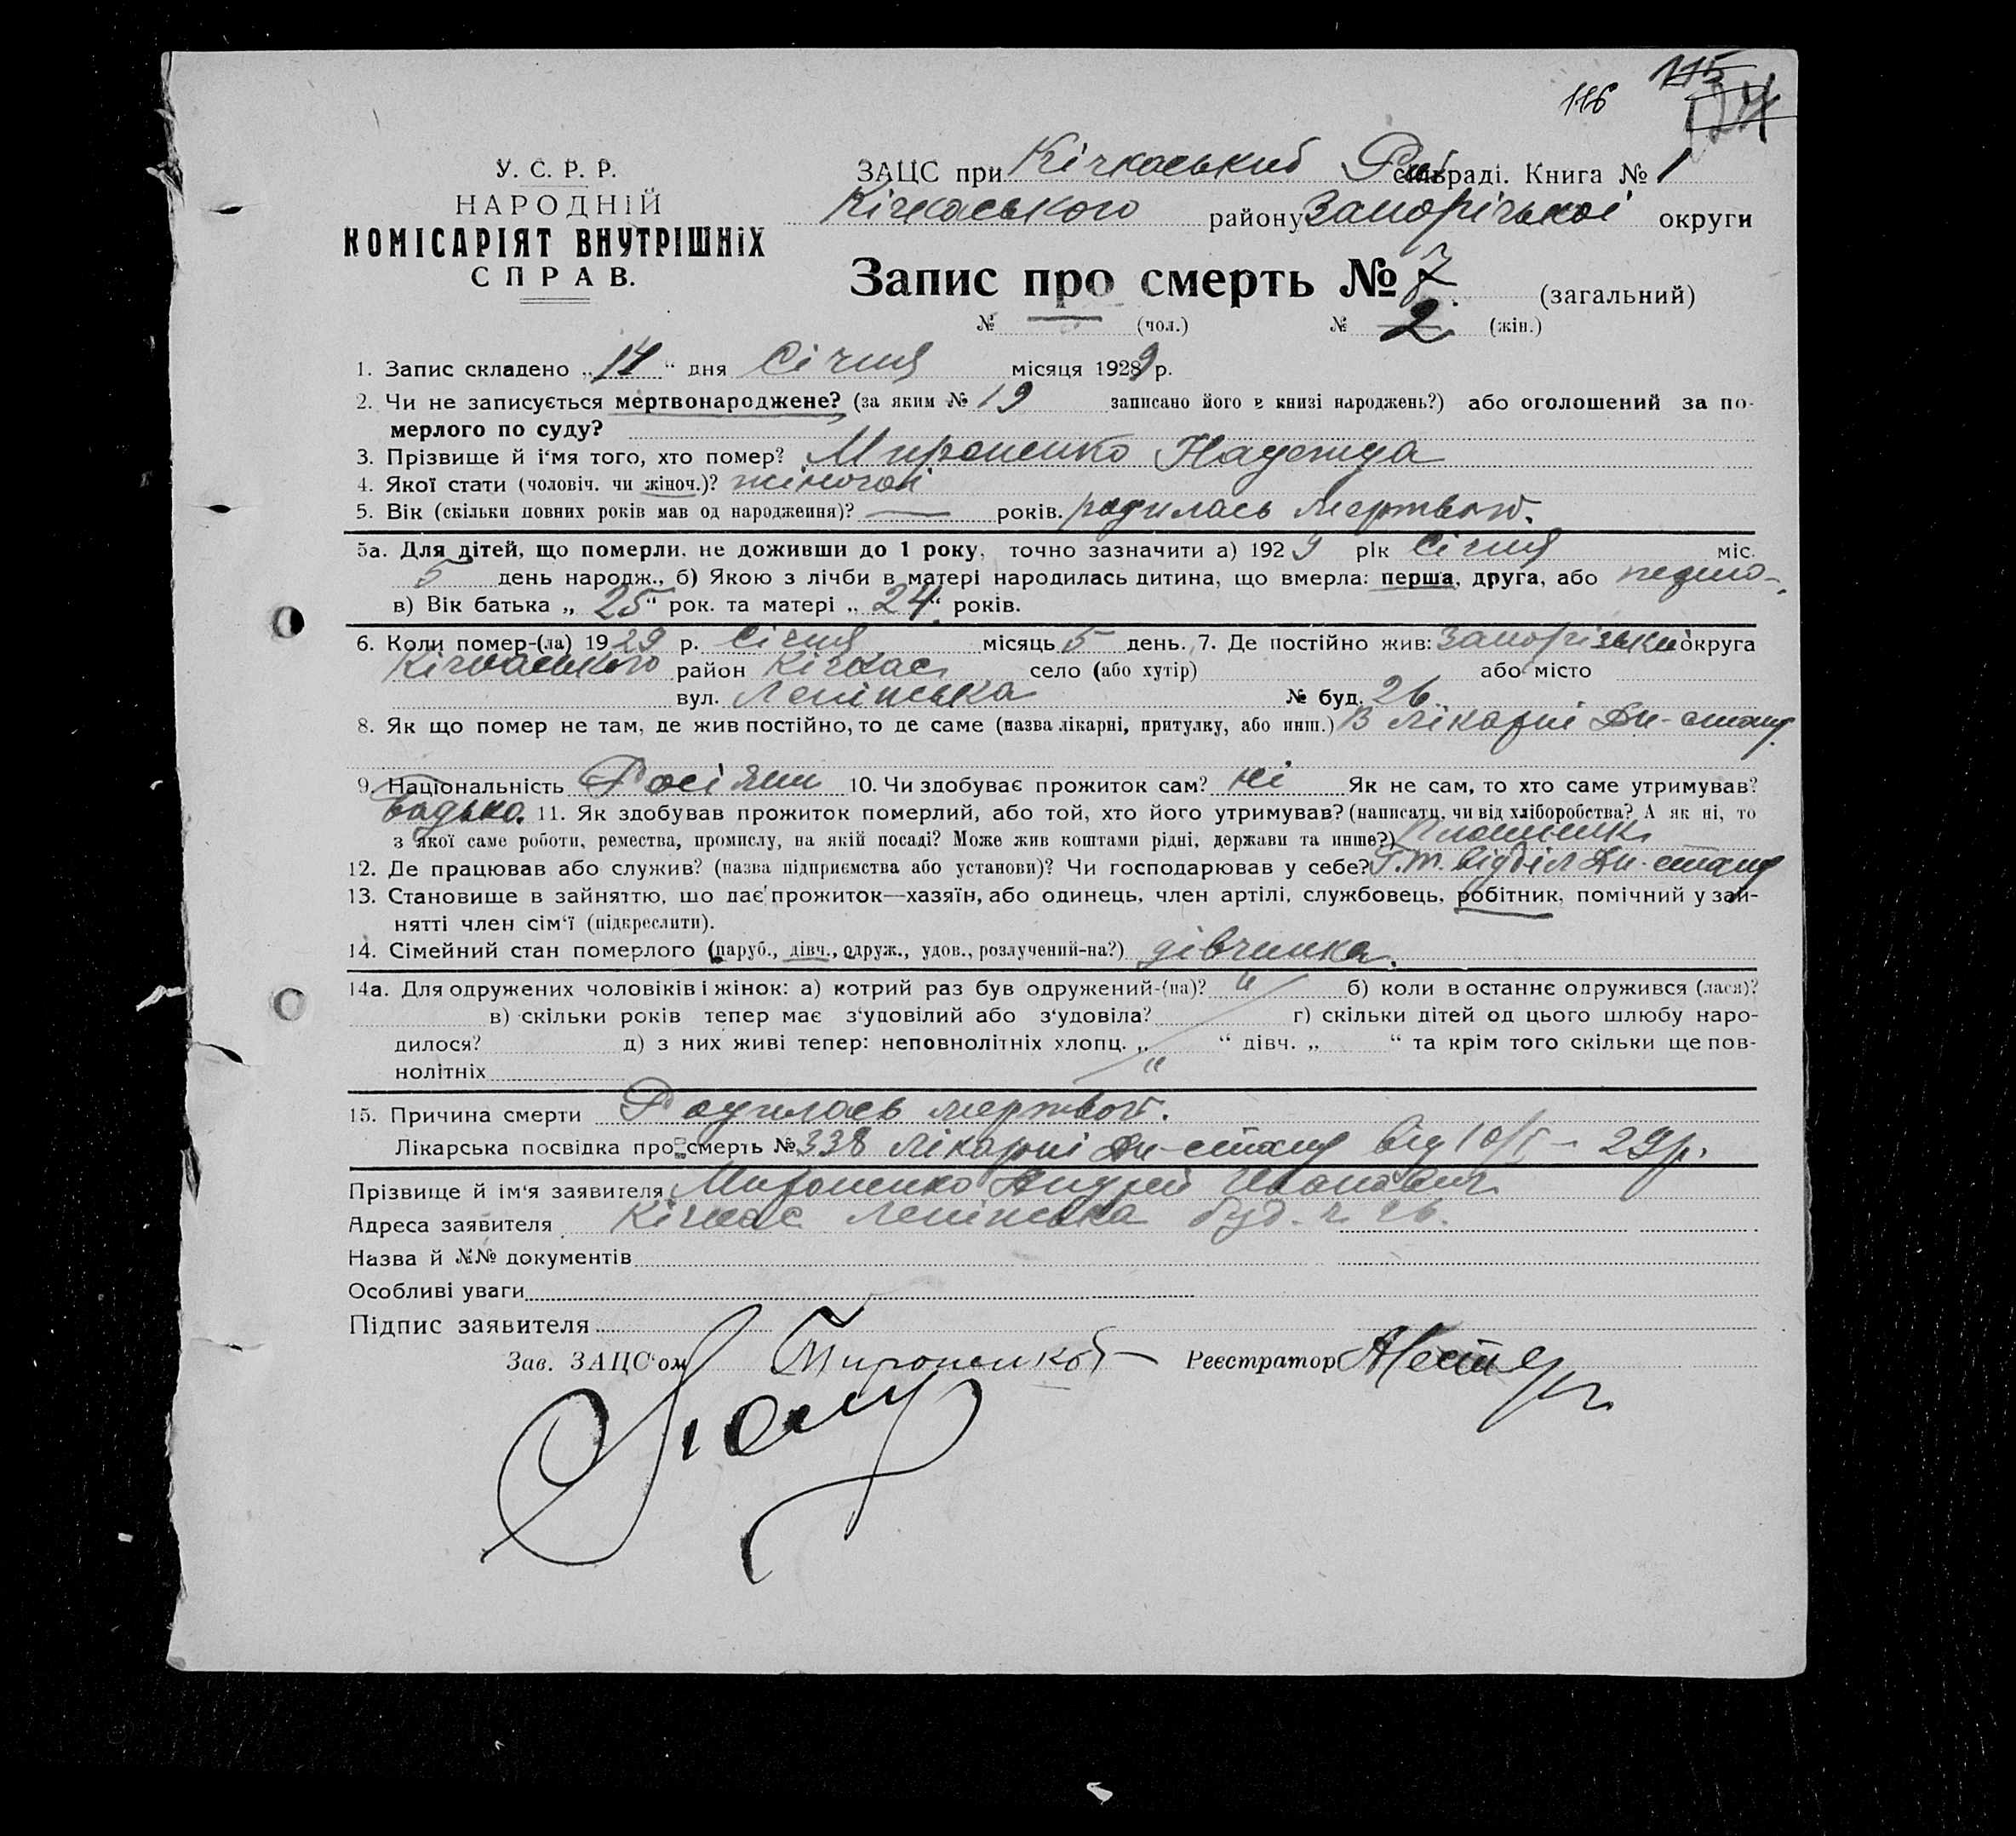 116 115
124
У. С. Р. Р.
НАРОДНІЙ
КОМІСАРІЯТ ВНУТРІШНІХ
СПРАВ.
ЗАЦС при Кічкаський Рай сільраді. Книга № 1
Кічкаського району Запорізької округи
Запис про смерть № 7 (загальний)
№ — (чол.) № 2 (жін.)
1. Запис складено „14“ дня Січня місяця 1929 р.
2. Чи не записується мертвонароджене? (за яким № 19 записано його в книзі народжень?) або оголошений за по-
мерлого по суду?
3. Прізвище й і'мя того, хто помер? Мироненко Надежда
4. Якої стати (чоловіч. чи жіноч.)? жіночої
5. Вік (скільки повних років мав од народження)? — років. родилась мертвой.
5а. Для дітей, що померли, не доживши до 1 року, точно зазначити а) 1929 рік Січня міс.
5 день народж., б) Якою з лічби в матері народилась дитина, що вмерла: перша, друга, або
в) Вік батька „25“ рок. та матері „24“ років.
6. Коли помер-(ла) 1929 р. Січня місяць 5 день. 7. Де постійно жив: Запорізька округа
Кічкаського район Кічкас село (або хутір) або місто
вул. Ленінська № буд. 26
8. Як що помер не там, де жив постійно, то де саме (назва лікарні, притулку, або инш.) В лікарні Дн-стану
9. Національність Росіянин 10. Чи здобуває прожиток сам? ні Як не сам, то хто саме утримував?
батько. 11. Як здобував прожиток померлий, або той, хто його утримував? (написати, чи від хліборобства? А як ні, то
з якої саме роботи, ремества, промислу, на якій посаді? Може жив коштами рідні, держави та инше?)
12. Де працював або служив? (назва підприємства або установи)? Чи господарював у себе? відділ Дн-стану
13. Становище в зайняттю, що дає прожиток—хазяїн, або одинець, член артілі, службовець, робітник, помічний у зай-
нятті член сім'ї (підкреслити).
14. Сімейний стан померлого (паруб., дівч., одруж., удов., розлучений-на?) дівчинка.
14а. Для одружених чоловіків і жінок: а) котрий раз був одружений-(на)? " б) коли в останнє одружився (лася)?
в) скільки років тепер має з'удовілий або з'удовіла? г) скільки дітей од цього шлюбу наро-
дилося? д) з них живі тепер: неповнолітніх хлопц. „ “ дівч. „ “ та крім того скільки ще пов-
нолітніх "
15. Причина смерти Родилась мертвой.
Лікарська посвідка про смерть № 338 лікарні Дн-стану від 10/I – 29р.
Прізвище й ім'я заявителя Мироненко Андрей Иванович
Адреса заявителя Кічкас Ленінська буд. ч. 26.
Назва й №№ документів
Особливі уваги
Підпис заявителя
Зав. ЗАЦС'ом Мироненко Реєстратор